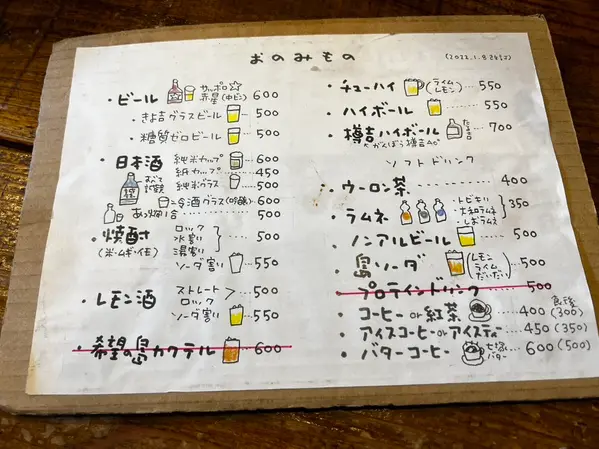 おのみもの
・ビール サッポロ☆赤星(中ビン) 600
・きよ吉グラスビール 500
・糖質ゼロビール 500
・日本酒 純米カップ 600
紙カップ 450
純米グラス 500
冷酒グラス(吟醸) 600
あつ燗1合 500
・焼酎 (米・ムギ・イモ)
ロック
水割り
湯割り 500
ソーダ割り 550
・レモン酒 ストレート
ロック > 500
ソーダ割り 550
・希望の島カクテル 600
・チューハイ (ライム レモン) 550
・ハイボール 550
・樽吉ハイボール 700
がんばろう樽吉
ソフトドリンク
・ウーロン茶 400
・ラムネ ・トビキリ
・大和ラムネ
・しおラムネ 350
・ノンアルビール 500
・島ソーダ (レモン ライム だいだい) 500
・プロテインドリンク 500
食後
・コーヒー or 紅茶 400 (300)
・アイスコーヒー or アイスティー 450 (350)
・バターコーヒー 600 (500)